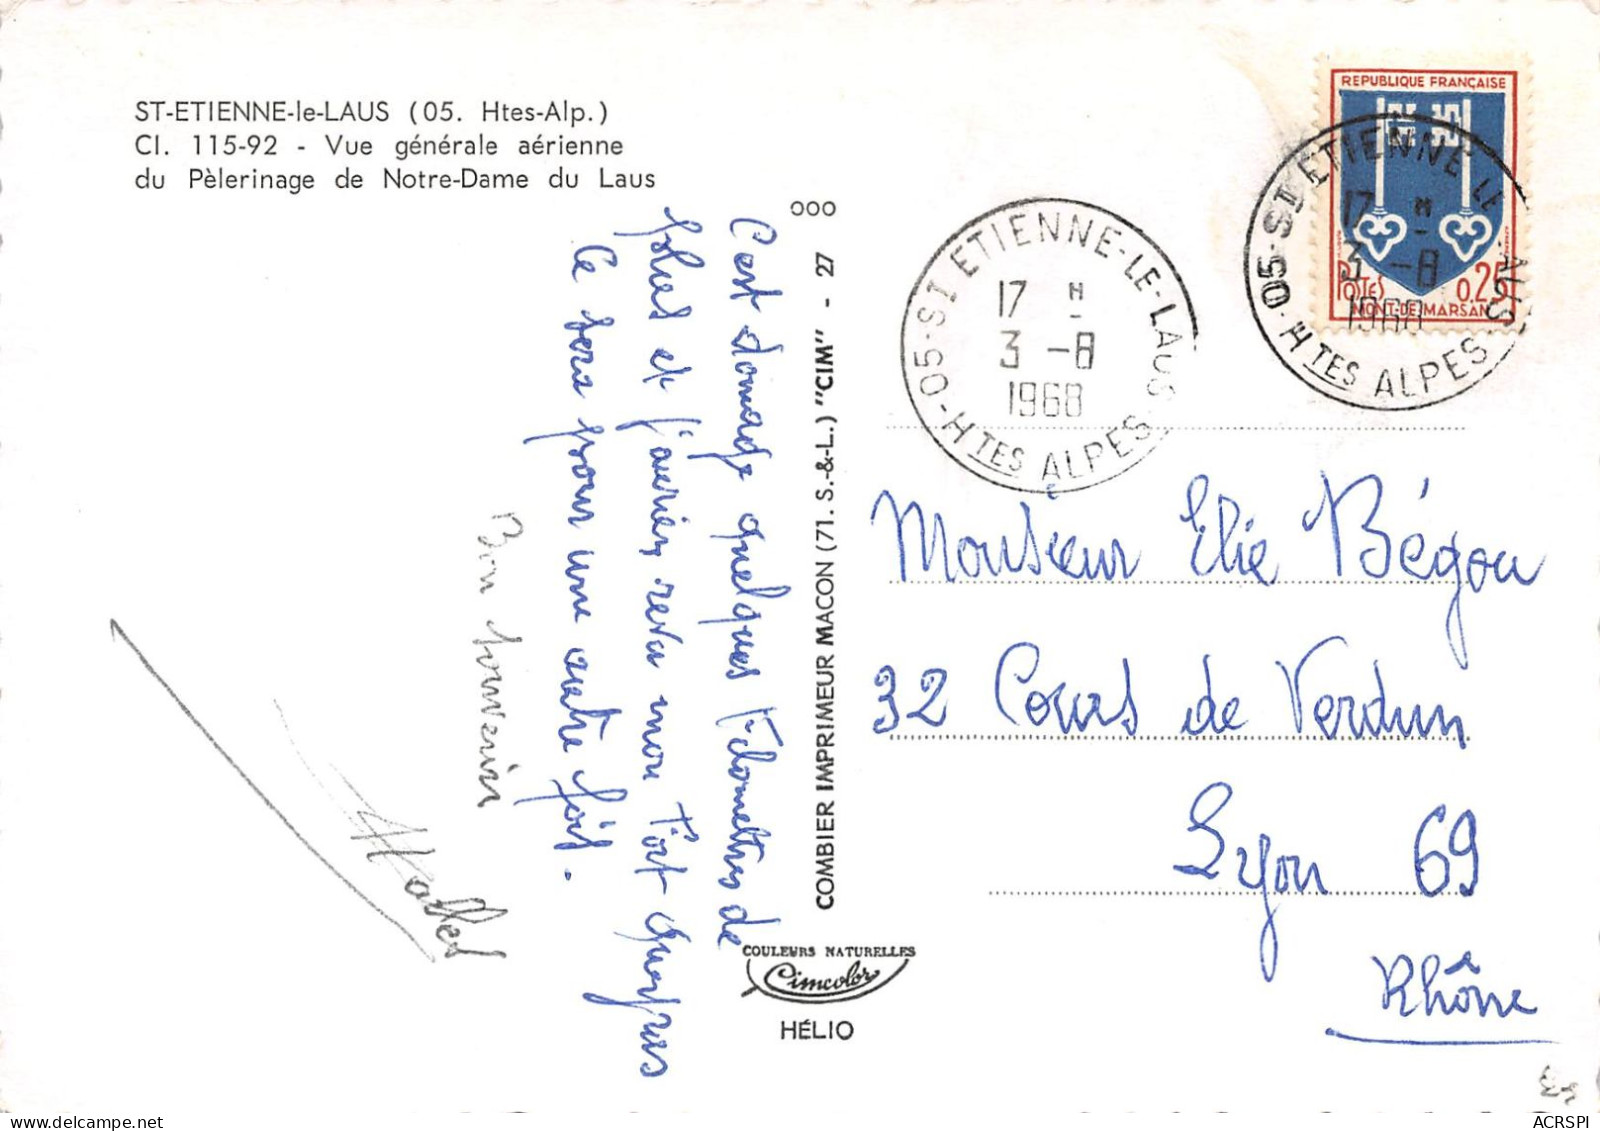 ST-ETIENNE-le-LAUS (05. Htes-Alp.)
CI. 115-92 - Vue générale aérienne
du Pèlerinage de Notre-Dame du Laus
C'est domage quelques Kilomettres de
et j'auriez revu mon
Ce sera pour une autre fois.
Bon souvenir
COMBIER IMPRIMEUR MACON (71. S.-&-L.) "CIM" - 27
ooo
COULEURS NATURELLES
Cimcolor
HÉLIO
05-ST ETIENNE-LE-LAUS
17 H
3 -8
1968
HTES ALPES
REPUBLIQUE FRANÇAISE
POSTES 0.25
MONT-DE-MARSAN
05-ST ETIENNE-LE-LAUS
17 H
3 -8
1968
HTES ALPES
Monsieur Elie Bégou
32 Cours de Verdun
Lyon 69
Rhône
ACRSPI